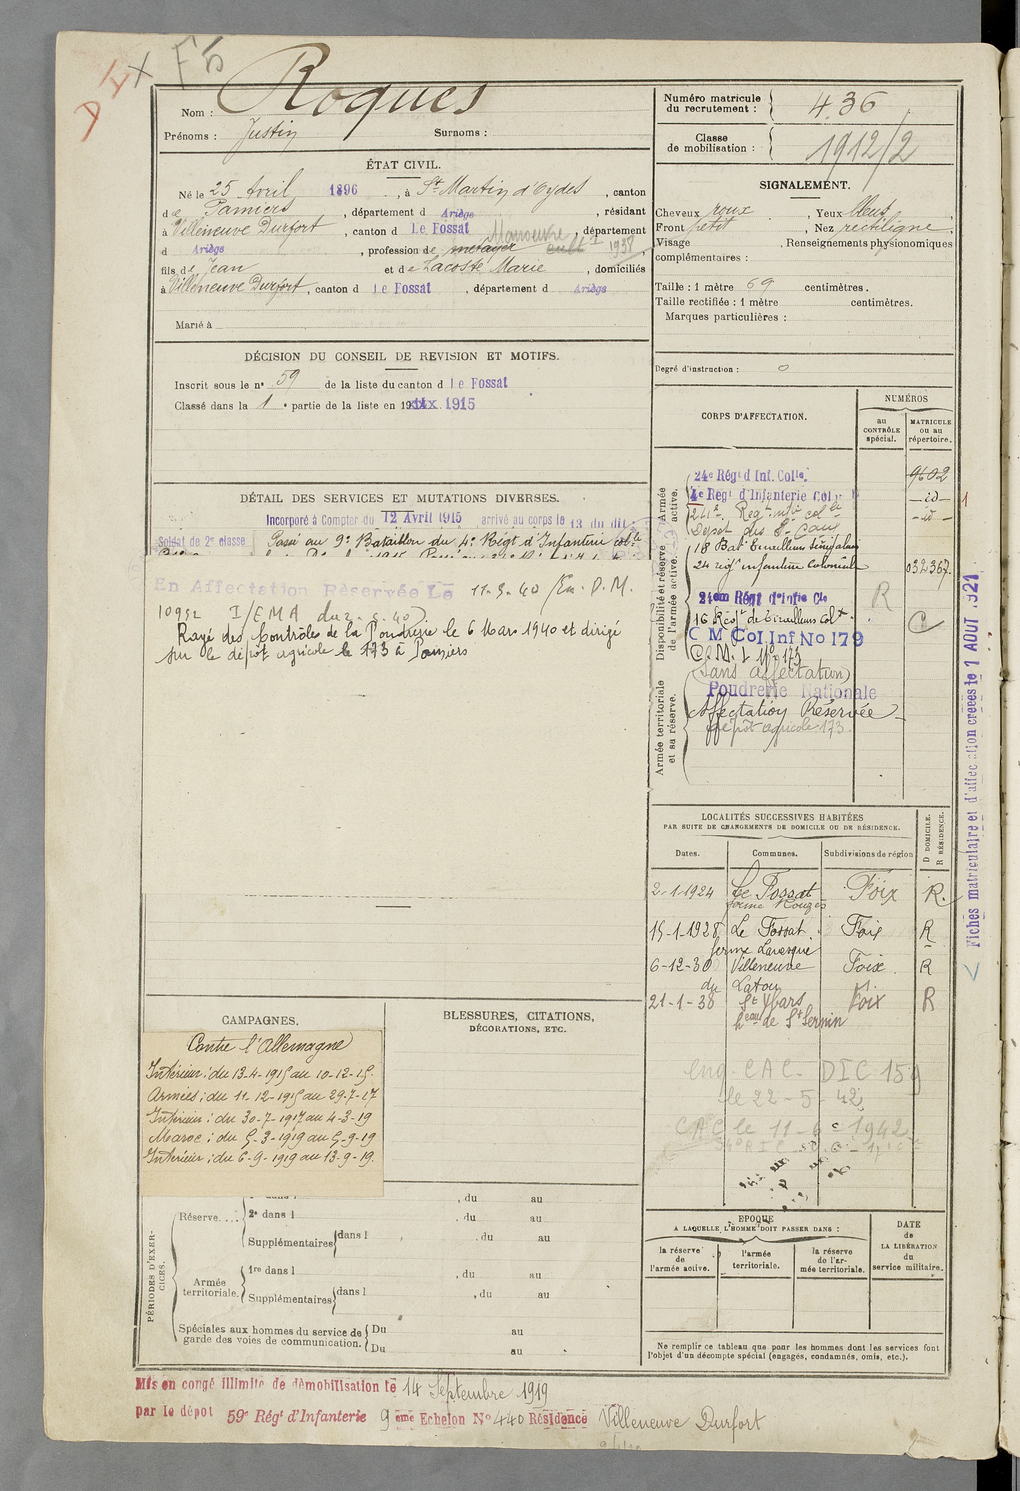 DIX F5
Nom : Roques
Prénoms : Justin Surnoms :
Numéro matricule du recrutement : 436
Classe de mobilisation : 1912/2
ÉTAT CIVIL.
Né le 25 Avril 1896, à St Martin d'Oydes, canton
d de Pamiers, département d Ariège, résidant
à Villeneuve Durfort, canton d Le Fossat, département
d Ariège, profession de métayer Manoeuvre cult 1938
fils de Jean et de Lacoste Marie, domiciliés
à Villeneuve Durfort, canton d Le Fossat, département d Ariège
Marié à
SIGNALEMENT.
Cheveux roux, Yeux bleus,
Front petit, Nez rectiligne,
Visage, Renseignements physionomiques
complémentaires :
Taille : 1 mètre 69 centimètres.
Taille rectifiée : 1 mètre centimètres.
Marques particulières :
Degré d'instruction : 0
DÉCISION DU CONSEIL DE REVISION ET MOTIFS.
Inscrit sous le n° 59 de la liste du canton d Le Fossat
Classé dans la 1e partie de la liste en 1915
DÉTAIL DES SERVICES ET MUTATIONS DIVERSES.
Incorporé à Compter du 12 Avril 1915 arrivé au corps le 13 du dit
Soldat de 2e classe Passé au 9e Bataillon du 4e Régt d'Infanterie colle
En Affectation Réservée Le 11-3-40 En. D.M.
10952 I/EMA du 2-5-40
Rayé des Contrôles de la Poudrerie le 6 Mars 1940 et dirigé
sur le dépôt agricole le 173 à Pamiers
CORPS D'AFFECTATION.
NUMÉROS
au CONTRÔLE spécial.
MATRICULE ou au répertoire.
Armée active.
24e Régt d'Inf. Colle. 9602
4e Regt d'Infanterie Col -id- 1
24e Regt Inf colle -id-
Disponibilité et réserve de l'armée active.
18 Bat Tirailleurs sénégalais
24 regt infanterie coloniale 032367
24eme Régt d'Infie Cle R
16 Régt de Tirailleurs Col C
C M Col Inf No 179
C.M.I. No 173
(Sans affectation)
Armée territoriale et sa réserve.
Poudrerie Nationale
Affectation Réservée
dépôt agricole 173
Fiches matriculaire et d'affectation créées le 1 AOUT 1921
LOCALITÉS SUCCESSIVES HABITÉES
PAR SUITE DE CHANGEMENTS DE DOMICILE OU DE RÉSIDENCE.
Dates. Communes. Subdivisions de région D DOMICILE. R RÉSIDENCE.
2-1-1924 Le Fossat Foix R.
ferme Rouges
15-1-1928 Le Fossat Foix R
6-12-30 Villeneuve Foix R
du Latou
21-1-38 St Ybars Foix R
heau de St Sernin
CAC DIC 159
le 22-5-42
CAC le 11-6-1942
CAMPAGNES.
Contre l'Allemagne
Intérieur : du 13-4-1915 au 10-12-15.
Armées : du 11-12-1915 au 29-7-17
Intérieur : du 30-7-1917 au 4-3-19
Maroc : du 5-3-1919 au 5-9-19
Intérieur : du 6-9-1919 au 13-9-19.
BLESSURES, CITATIONS,
DÉCORATIONS, ETC.
PÉRIODES D'EXERCICES.
Réserve....
1re dans l , du au
2e dans l , du au
Supplémentaires dans l , du au
Armée territoriale.
1re dans l , du au
Supplémentaires dans l , du au
Spéciales aux hommes du service de garde des voies de communication.
Du au
Du au
EPOQUE
A LAQUELLE L'HOMME DOIT PASSER DANS :
la réserve de l'armée active.
l'armée territoriale.
la réserve de l'armée territoriale.
DATE de LA LIBÉRATION du service militaire.
Ne remplir ce tableau que pour les hommes dont les services font
l'objet d'un décompte spécial (engagés, condamnés, omis, etc.).
Mis en congé illimité de démobilisation le 14 Septembre 1919
par le dépôt 59e Régt d'Infanterie 9 eme Echelon No 440 Résidence Villeneuve Durfort